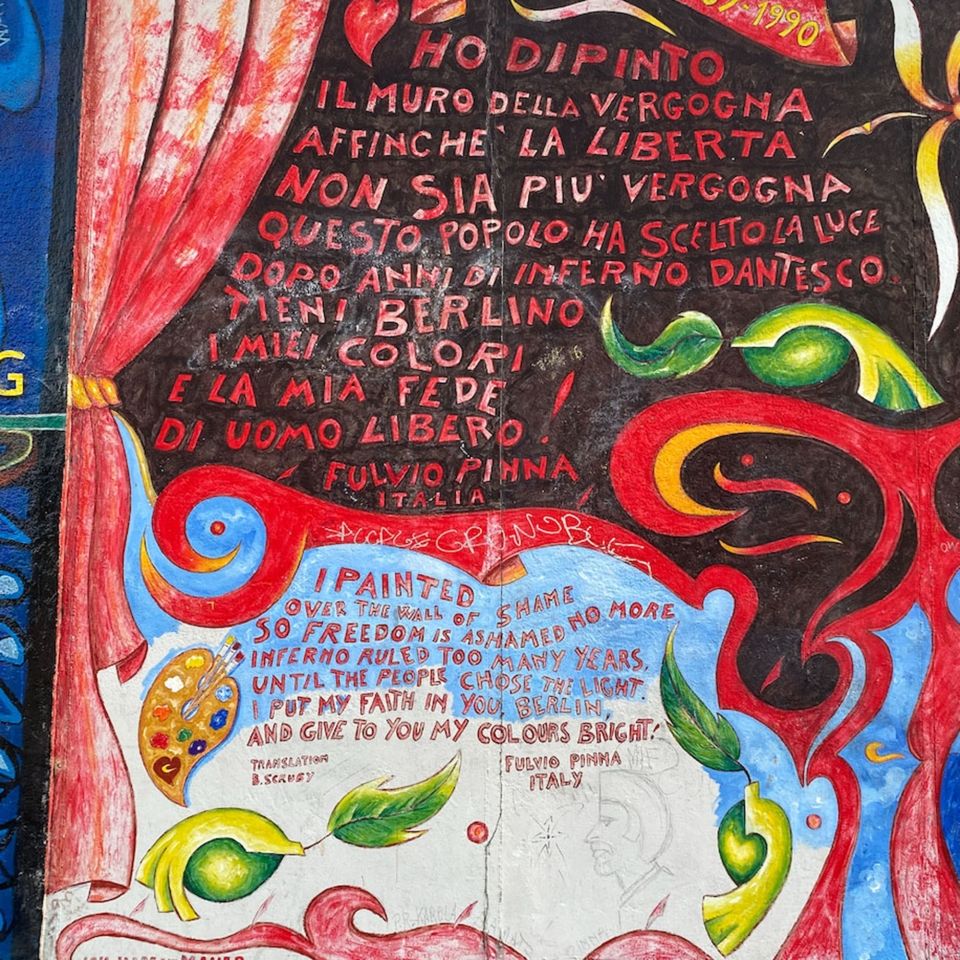 -1990
HO DIPINTO
IL MURO DELLA VERGOGNA
AFFINCHE' LA LIBERTA'
NON SIA PIU' VERGOGNA
QUESTO POPOLO HA SCELTO LA LUCE
DOPO ANNI DI INFERNO DANTESCO.
TIENI BERLINO
I MIEI COLORI
E LA MIA FEDE
DI UOMO LIBERO!
FULVIO PINNA
ITALIA
G
I PAINTED
OVER THE WALL OF SHAME
SO FREEDOM IS ASHAMED NO MORE
INFERNO RULED TOO MANY YEARS,
UNTIL THE PEOPLE CHOSE THE LIGHT.
I PUT MY FAITH IN YOU, BERLIN,
AND GIVE TO YOU MY COLOURS BRIGHT!
TRANSLATION
B. SCRUBY
FULVIO PINNA
ITALY